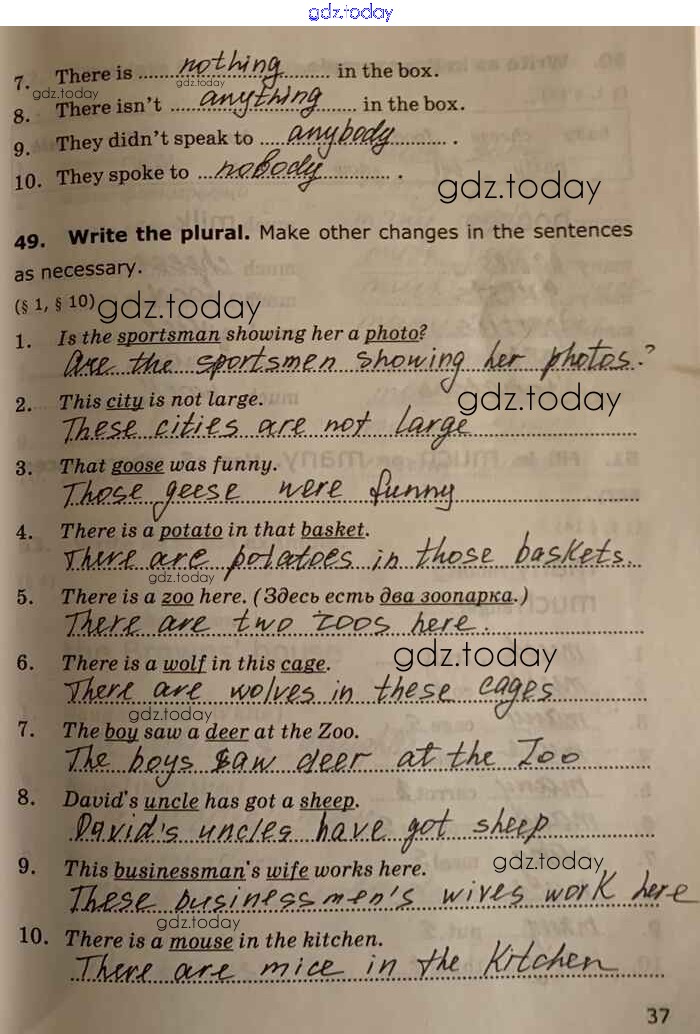 gdz.today
7. There is ...... nothing ......... in the box.
gdz.today gdz.today
8. There isn't ..... anything ...... in the box.
9. They didn't speak to .... anybody ......... .
10. They spoke to ... nobody ............ .
gdz.today
49. Write the plural. Make other changes in the sentences
as necessary.
(§ 1, § 10) gdz.today
1. Is the sportsman showing her a photo?
Are the sportsmen showing her photos?
2. This city is not large. gdz.today
These cities are not large
3. That goose was funny.
Those geese were funny
4. There is a potato in that basket.
There are potatoes in those baskets.
gdz.today
5. There is a zoo here. (Здесь есть два зоопарка.)
There are two zoos here.
6. There is a wolf in this cage. gdz.today
There are wolves in these cages
gdz.today
7. The boy saw a deer at the Zoo.
The boys saw deer at the Zoo
8. David's uncle has got a sheep.
David's uncles have got sheep
9. This businessman's wife works here. gdz.today
These businessmen's wives work here
gdz.today
10. There is a mouse in the kitchen.
There are mice in the kitchen
37